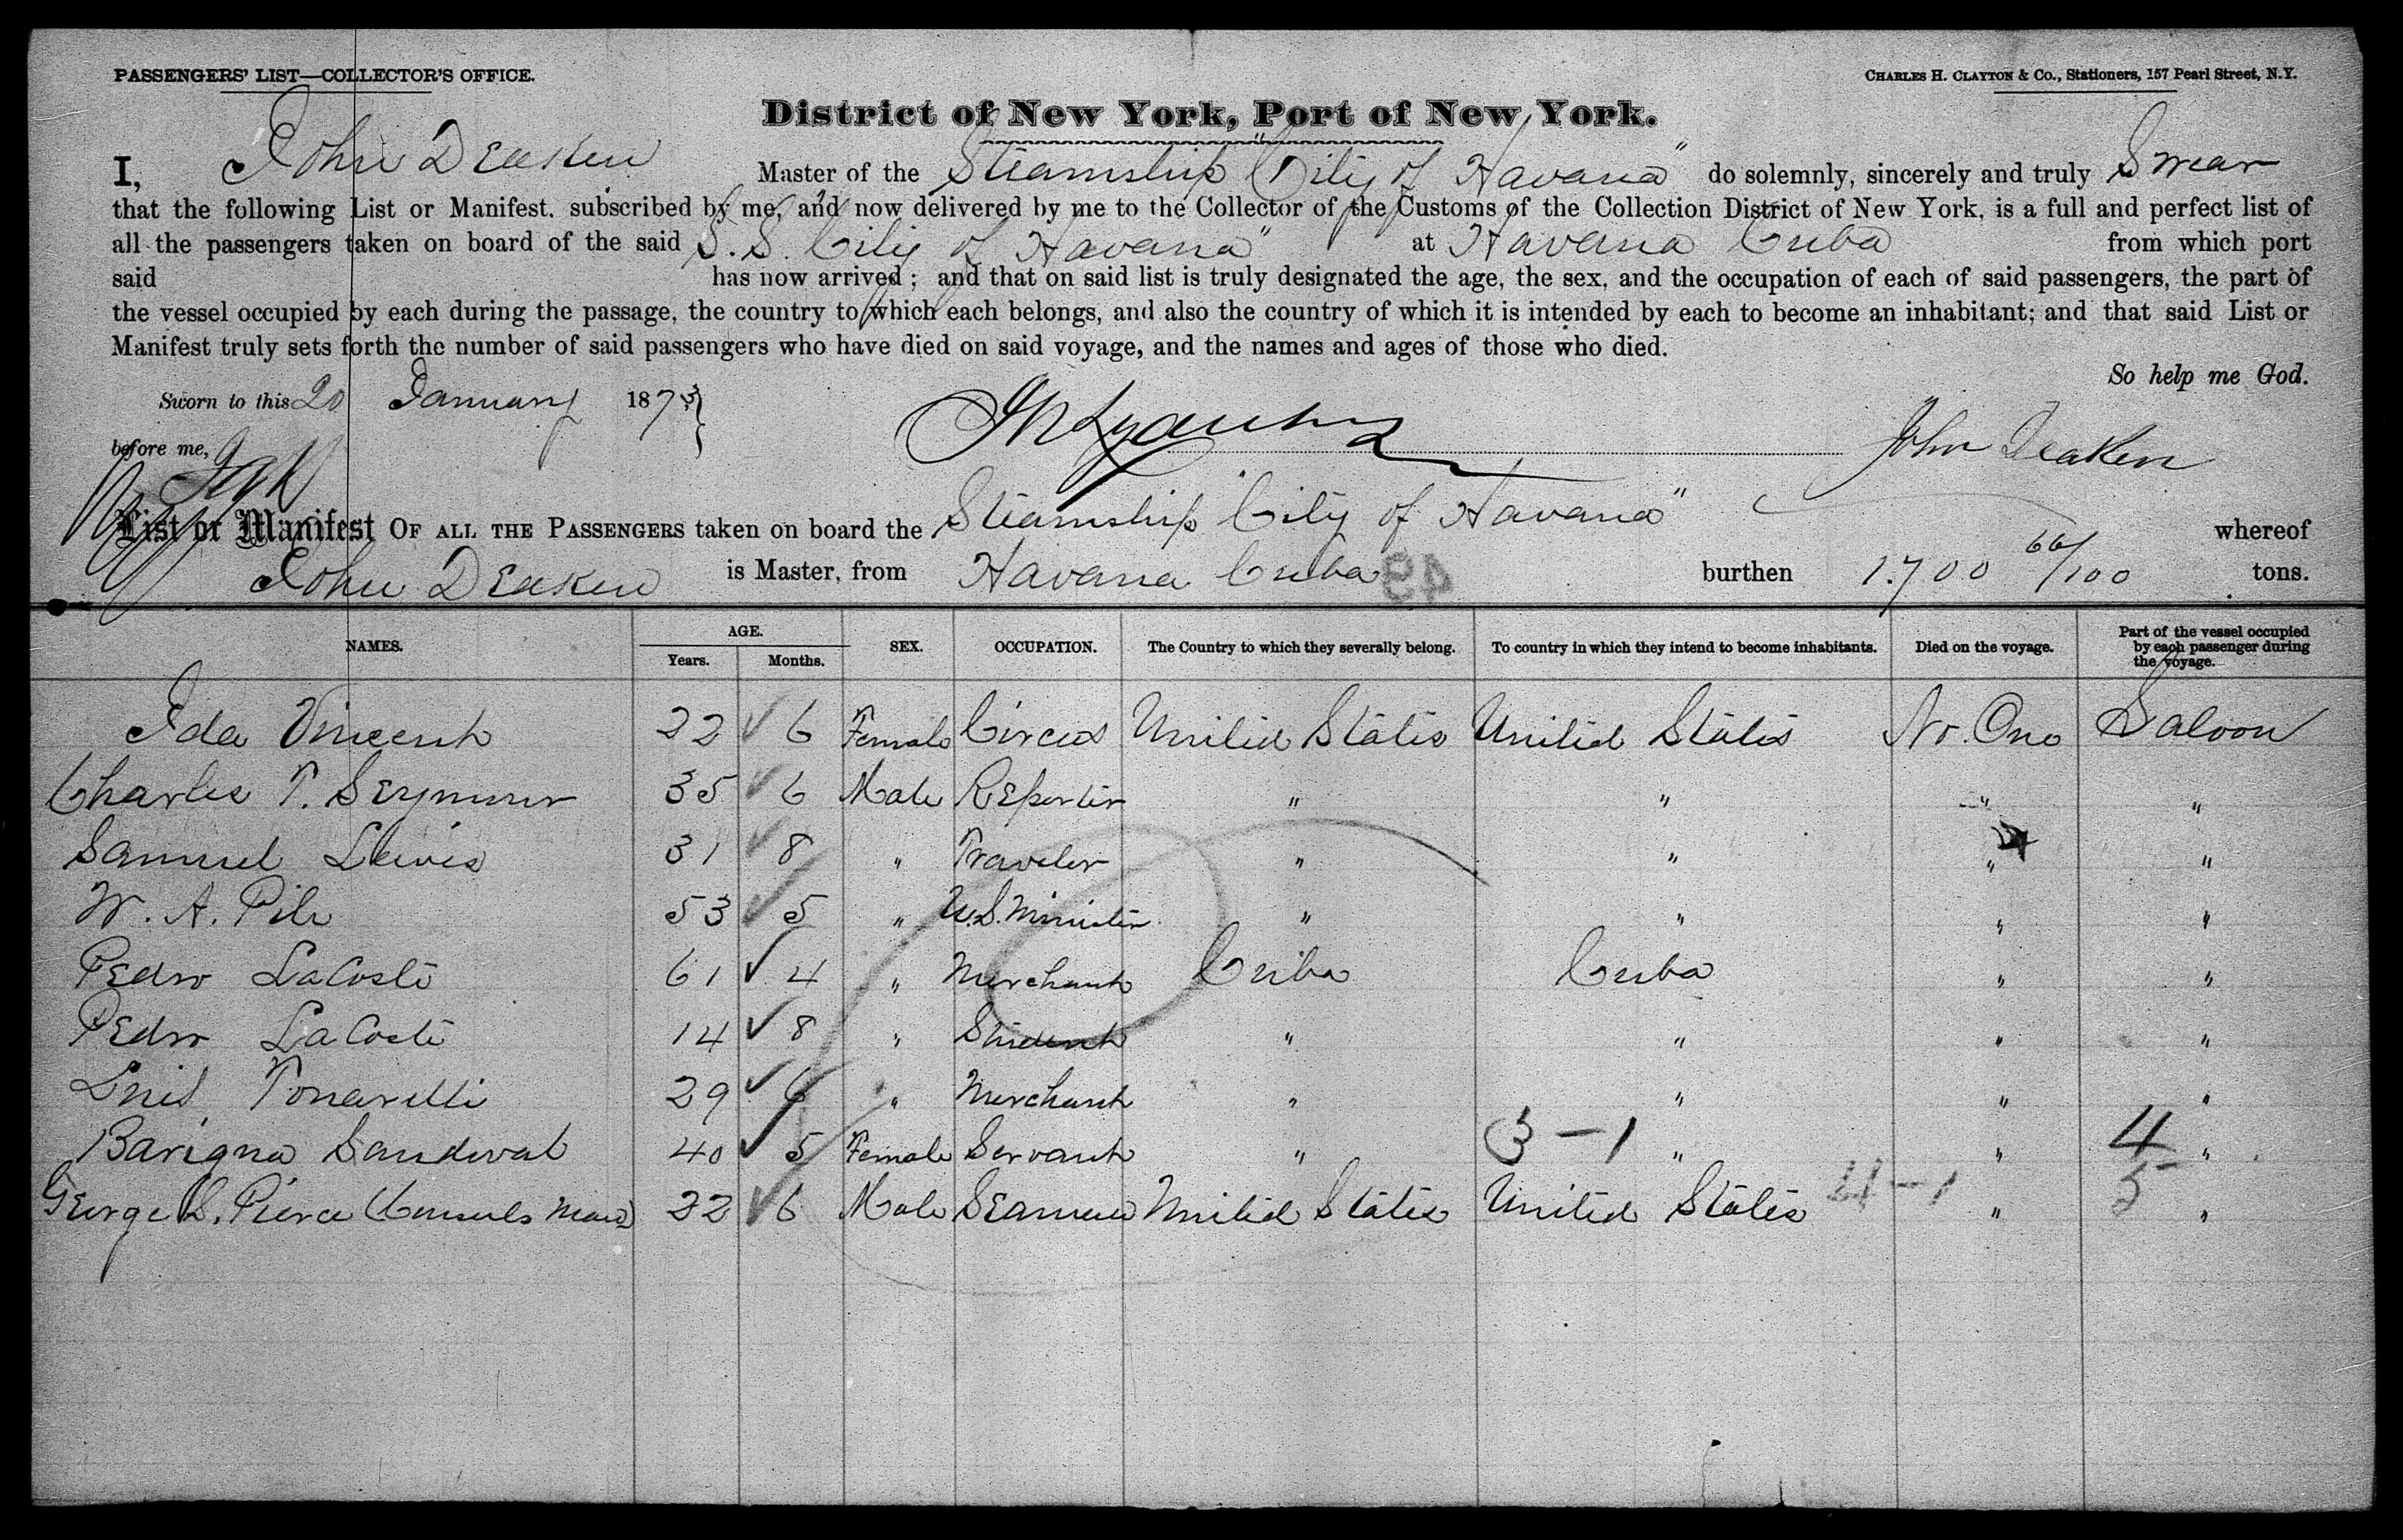 PASSENGERS' LIST—COLLECTOR'S OFFICE.
CHARLES H. CLAYTON & CO., Stationers, 157 Pearl Street, N.Y.
District of New York, Port of New York.
I, John Deaken Master of the Steamship "City of Havana" do solemnly, sincerely and truly Swear
that the following List or Manifest, subscribed by me, and now delivered by me to the Collector of the Customs of the Collection District of New York, is a full and perfect list of
all the passengers taken on board of the said S.S. "City of Havana" at Havana Cuba from which port
said has now arrived; and that on said list is truly designated the age, the sex, and the occupation of each of said passengers, the part of
the vessel occupied by each during the passage, the country to which each belongs, and also the country of which it is intended by each to become an inhabitant; and that said List or
Manifest truly sets forth the number of said passengers who have died on said voyage, and the names and ages of those who died.
So help me God.
Sworn to this 20 January 1873
before me,
John Deaken
List or Manifest OF ALL THE PASSENGERS taken on board the Steamship "City of Havana" whereof
John Deaken is Master, from Havana Cuba burthen 1.700 66/100 tons.
43
NAMES. AGE. Years. Months. SEX. OCCUPATION. The Country to which they severally belong. To country in which they intend to become inhabitants. Died on the voyage. Part of the vessel occupied by each passenger during the voyage.
Ida Vincent 22 6 Female Circus United States United States No One Saloon
Charles T. Seymour 35 6 Male Reporter " " " "
Samuel Lewis 31 8 " Traveler " " " "
W. A. Pile 53 5 " U.S. Minister " " " "
Pedro LaCoste 61 4 " Merchant Cuba Cuba " "
Pedro LaCoste 14 8 " Student " " " "
Luis 29 6 " Merchant " " " "
Sandoval 40 5 Female Servant " 3-1 " " 4 "
George S. Pierce (Consuls Man) 22 6 Male Seaman United States United States 4-1 " 5 "